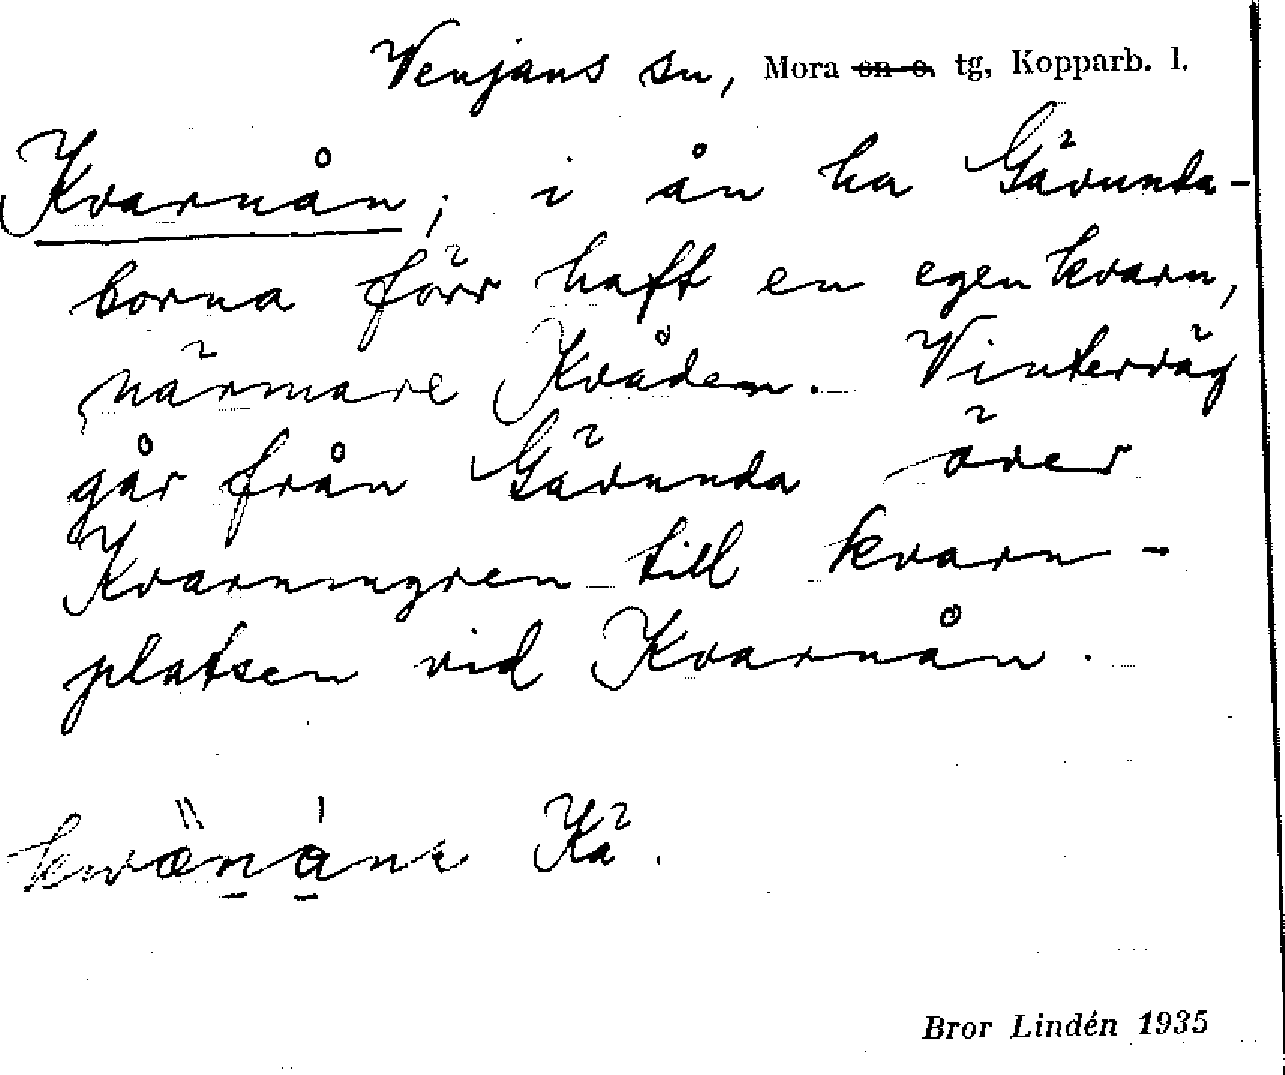 Venjans sn, Mora sn o. tg, Kopparb. l.
Kvarnån; i ån ha Gävunda-
borna förr haft en egen kvarn,
närmare Kvåden. Vinterväg
går från Gävunda över
Kvarnmyren till kvarn-
platsen vid Kvarnån.
Kä.
Bror Lindén 1935